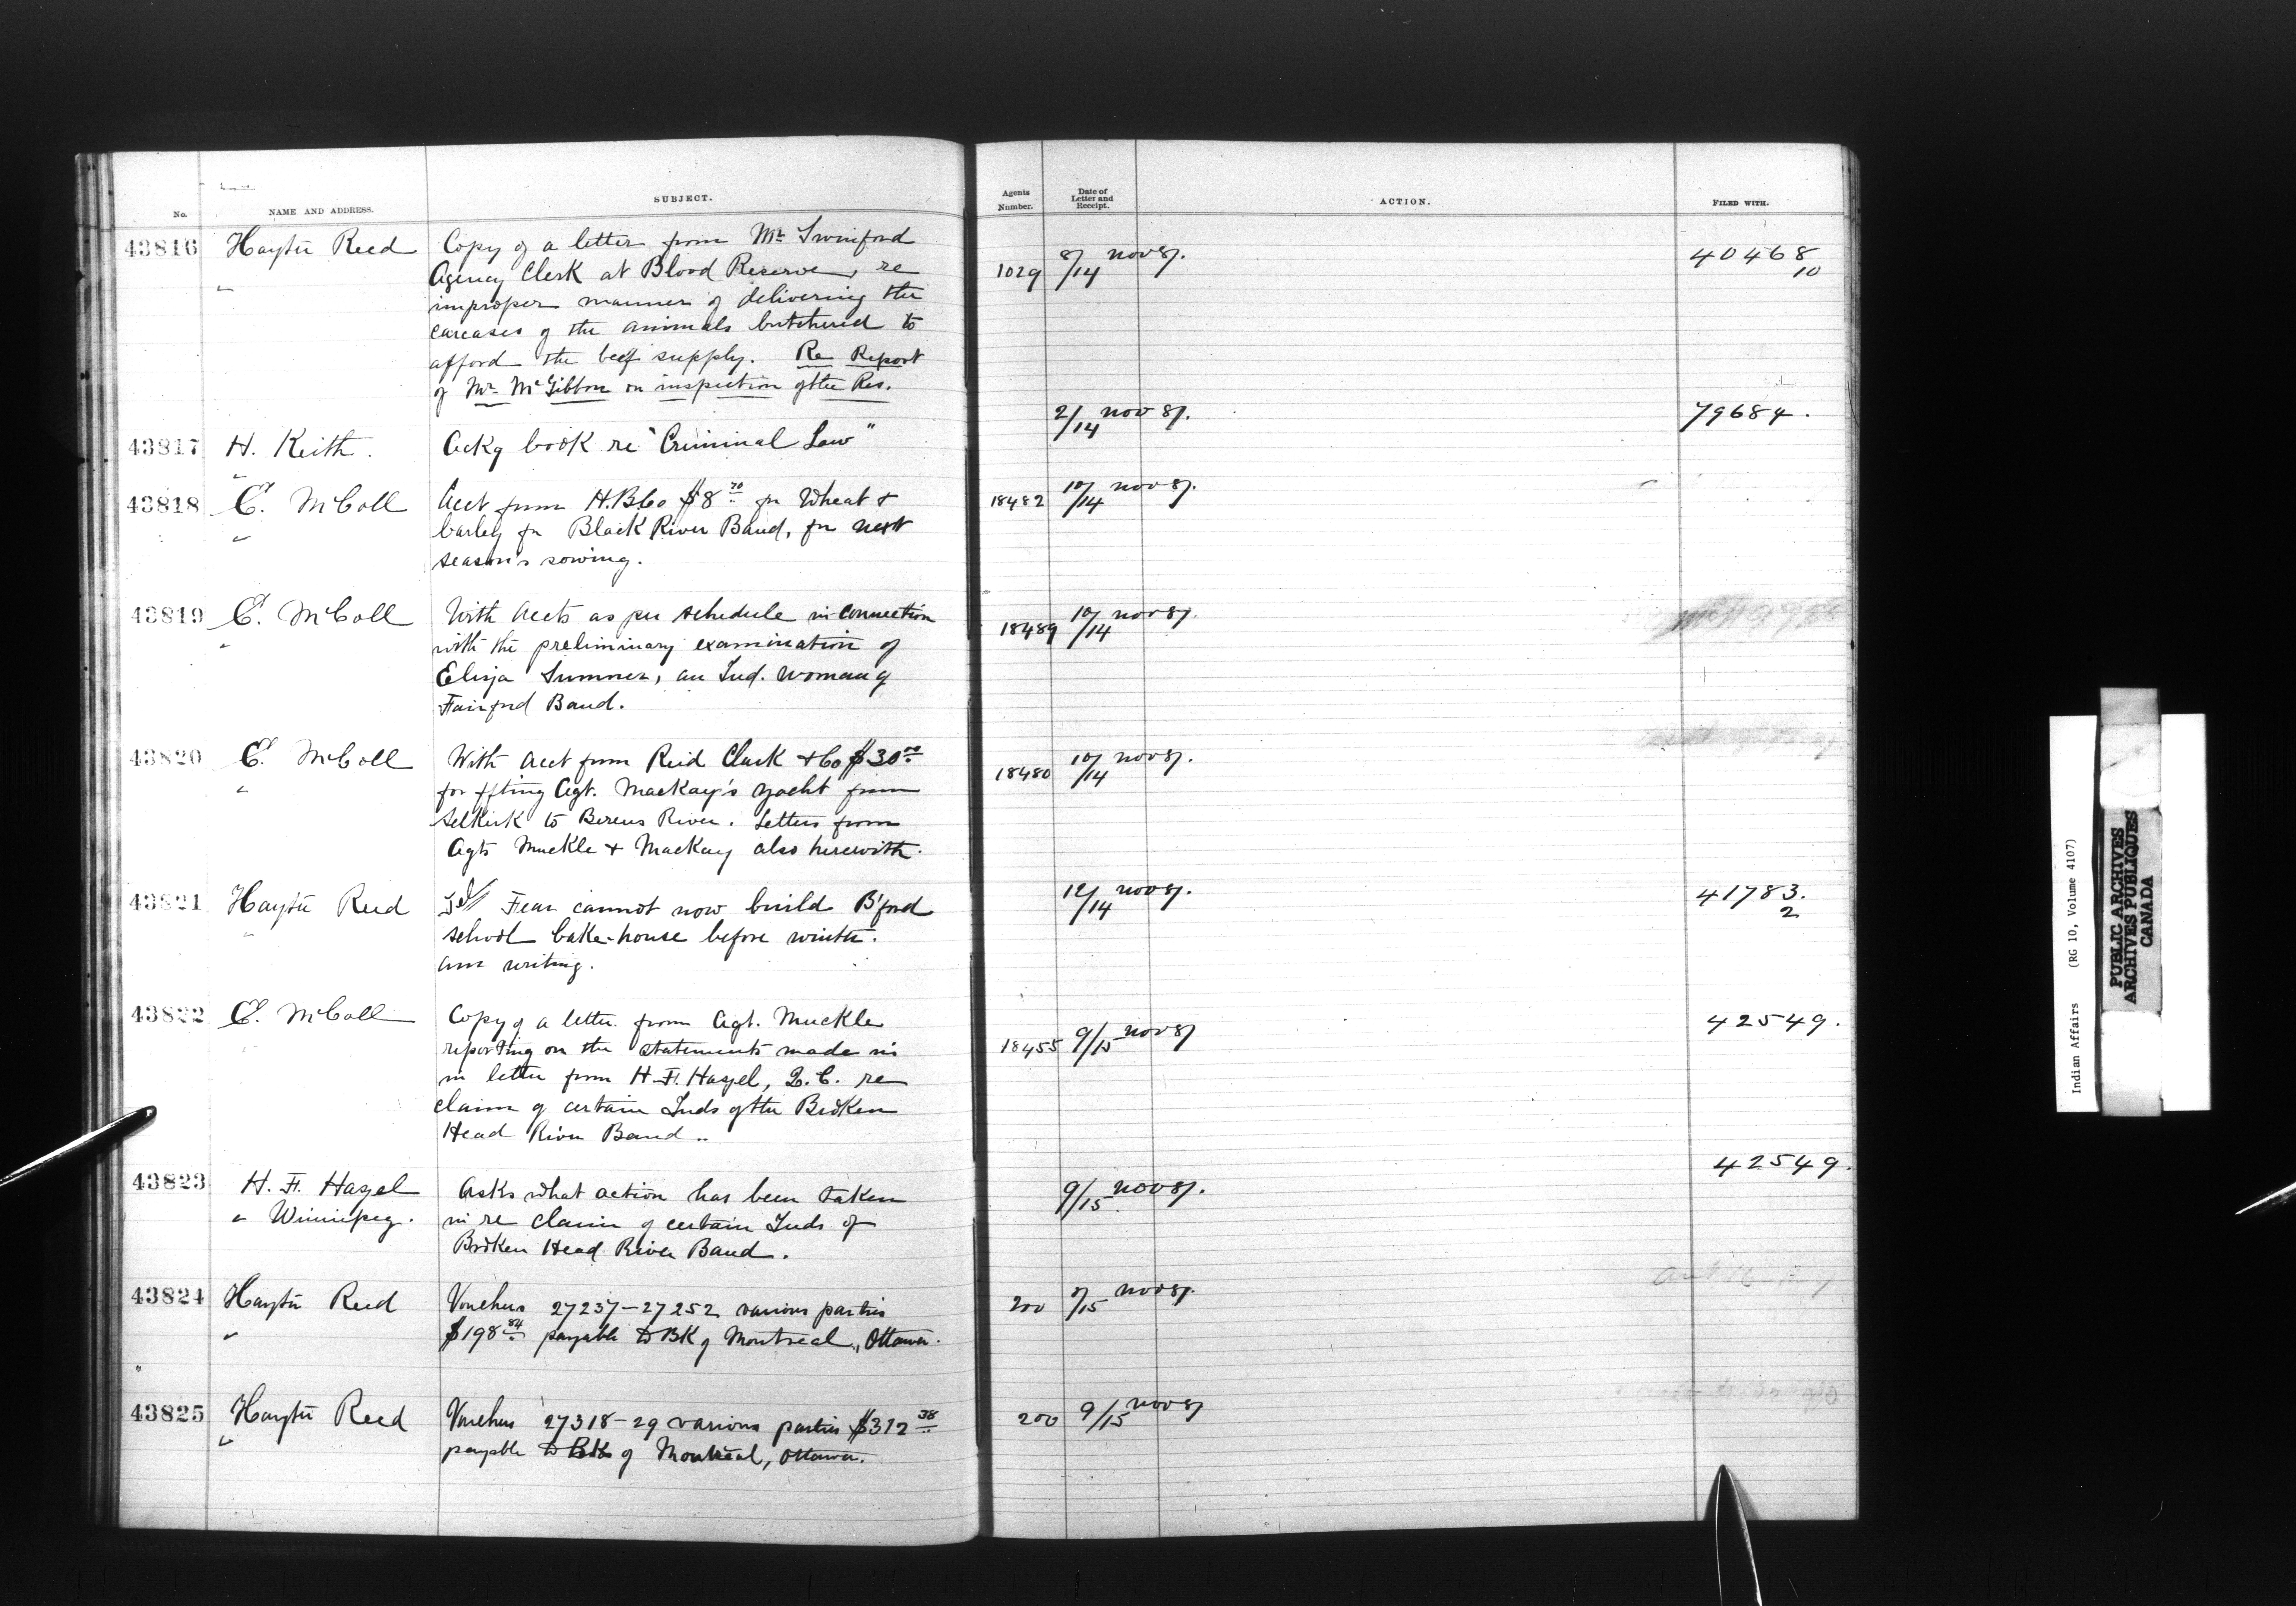 No. NAME AND ADDRESS. SUBJECT. Agents Number. Date of Letter and Receipt. ACTION. FILED WITH.
43816 Hayter Reed Copy of a letter from Mr Swinford 1029 8/14 nov 87. 40468/10
Agency Clerk at Blood Reserve, re
improper manner of delivering the
carcases of the animals butchered to
afford the beef supply. Re Report
of Mr. McGibbon on inspection of the Res.
43817 H. Keith. Ackg book re "Criminal Law" 2/14 nov 87. 79684.
43818 E. McColl Acct from H.B.Co $8 70 for Wheat & 18482 10/14 nov 87.
barley for Black River Band, for next
season's sowing.
43819 E. McColl With Accts as per schedule in connection 18489 10/14 nov 87.
with the preliminary examination of
Eliza Sumner, an Ind. woman of
Fairford Band.
43820 E. McColl With Acct from Reid Clark & Co $30 00 18480 10/14 nov 87.
for ffting Agt. MacKay's yacht from
Selkirk to Berens River. Letters from
Agts Muckle & MacKay also herewith.
43821 Hayter Reed Fear cannot now build B'ford 12/14 nov 87. 41783./2
school bake-house before winter.
am writing.
43822 E. McColl Copy of a letter from Agt. Muckle 18455 9/15 nov 87 42549.
reporting on the statements made in
in letter from H. F. Hagel, Q.C. re
claim of certain Inds of the Broken
Head River Band..
43823 H. F. Hagel Asks what action has been taken 9/15 nov 87. 42549.
" Winnipeg. in re claim of certain Inds of
Broken Head River Band.
43824 Hayter Reed Vouchers 27237-27252 various parties 200 nov 87.
$198 84 payable to BK of Montreal, Ottawa.
43825 Hayter Reed Vouchers 27318-29 various parties $312 38 200 9/15 nov 87
payable to BK of Montreal, Ottawa.
Indian Affairs (RG 10, Volume 4107)
PUBLIC ARCHIVES
ARCHIVES PUBLIQUES
CANADA